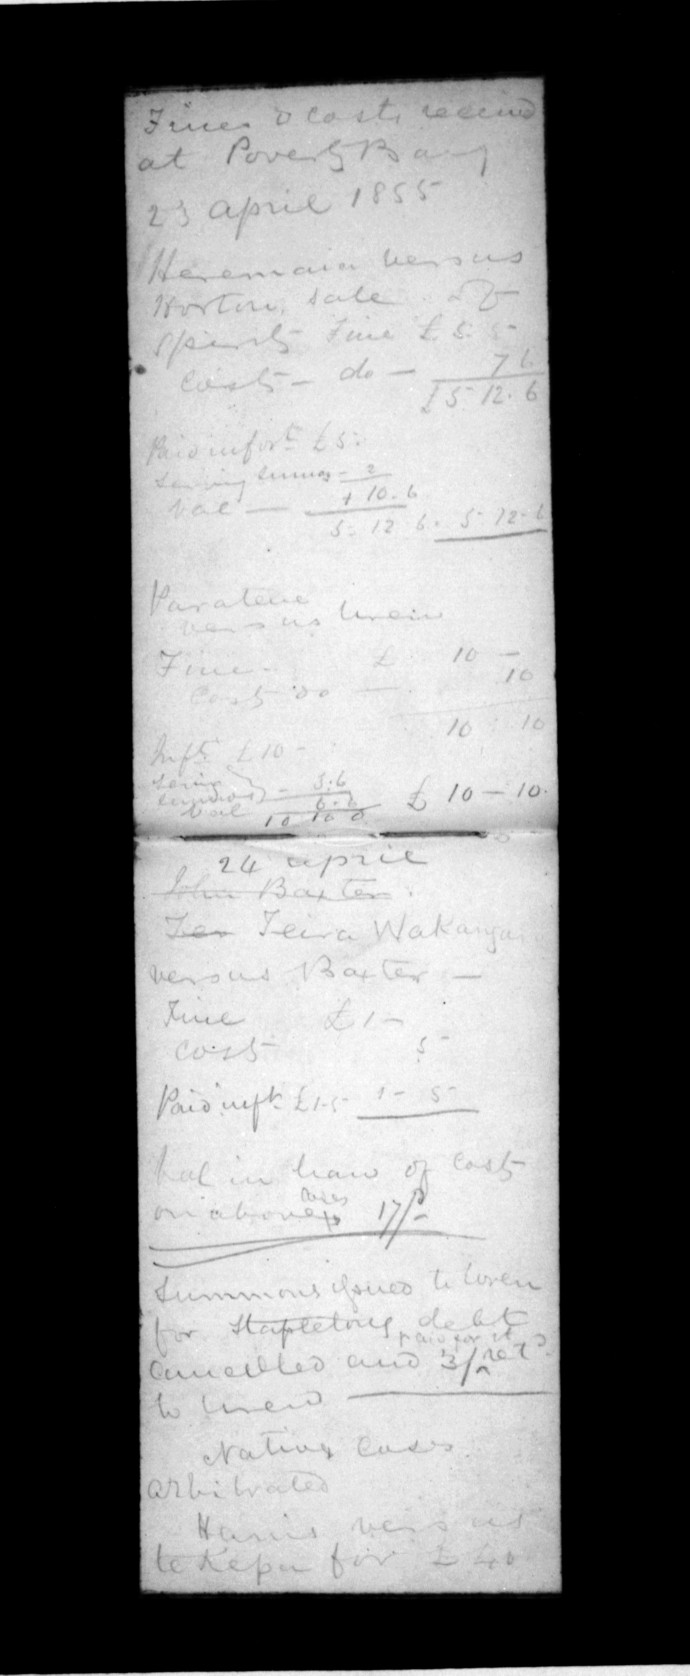 Fines & costs received
at Poverty Bay
23 April 1855
Heremaia versus
Horton, sale of
spirits Fine £5. 5 -
Costs - do - 7 6
£5. 12. 6
Paid infort £5.
serving sumns - 2
bal - 10. 6
5. 12. 6. 5-12-6
Paratene
versus Uren
Fine - £ 10 -
Costs do - 10
10 10
Inft £10 -
servg
summons - 3.6
bal 6.6
10 10 0 £10 - 10.
24 April
John Baxter
Ter Teira Wakangar
versus Baxter -
Fine £1 -
Costs 5 -
Paid inft. £1-5 1 - 5 -
bal in hand of costs
on above cases 17/-
Summons issued to Uren
for Stapletons debt
cancelled and paid for it 3/- retd
to Uren
Native Cases
arbitrated
Harris versus
te Kepa for £40